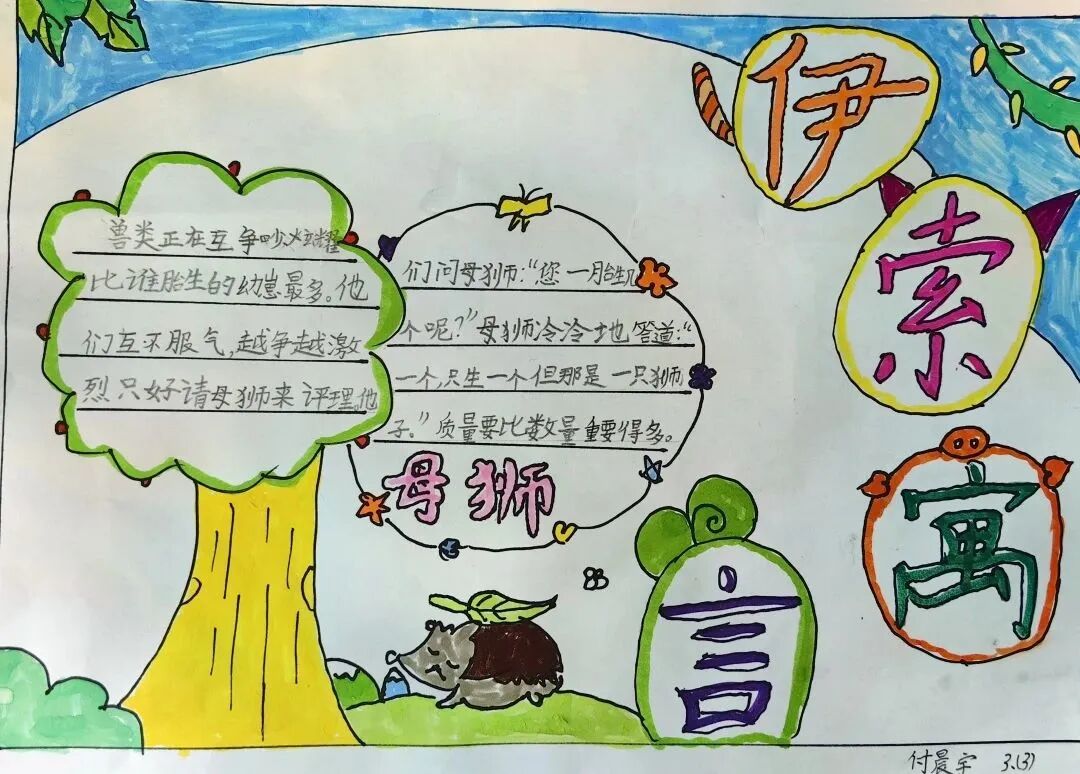 伊索寓言
兽类正在互争吵炫耀
比谁胎生的幼崽最多。他
们互不服气,越争越激
烈只好请母狮来评理。他
们问母狮:“您一胎生几
个呢?”母狮冷冷地答道:“
一个,只生一个但那是一只狮
子。”质量要比数量重要得多。
母狮
付晨宇 3.(3)